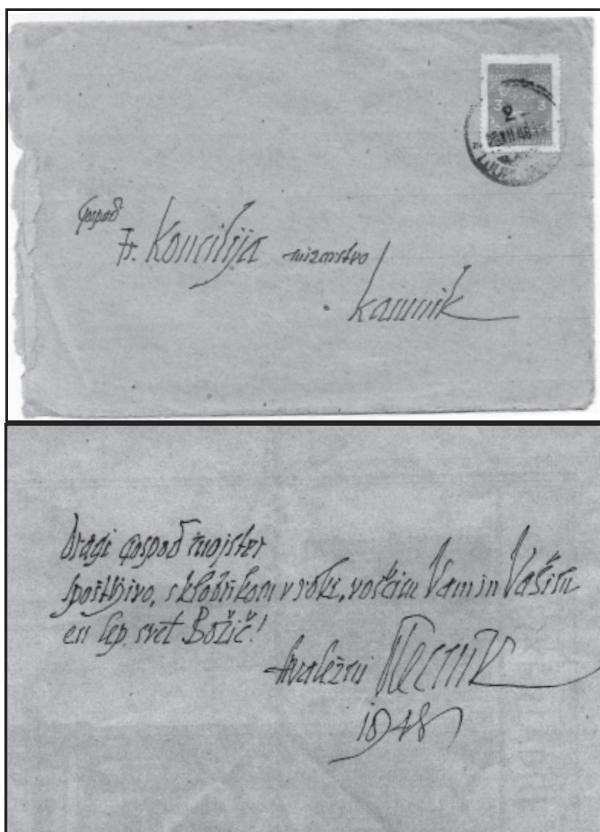 Gospod
Fr. Koncilija mizarstvo
Kamnik
Dragi gospod mojster
spoštljivo, s klobukom v roki, voščim Vam in Vašim
en lep svet Božič!
hvaležni Plečnik
1948